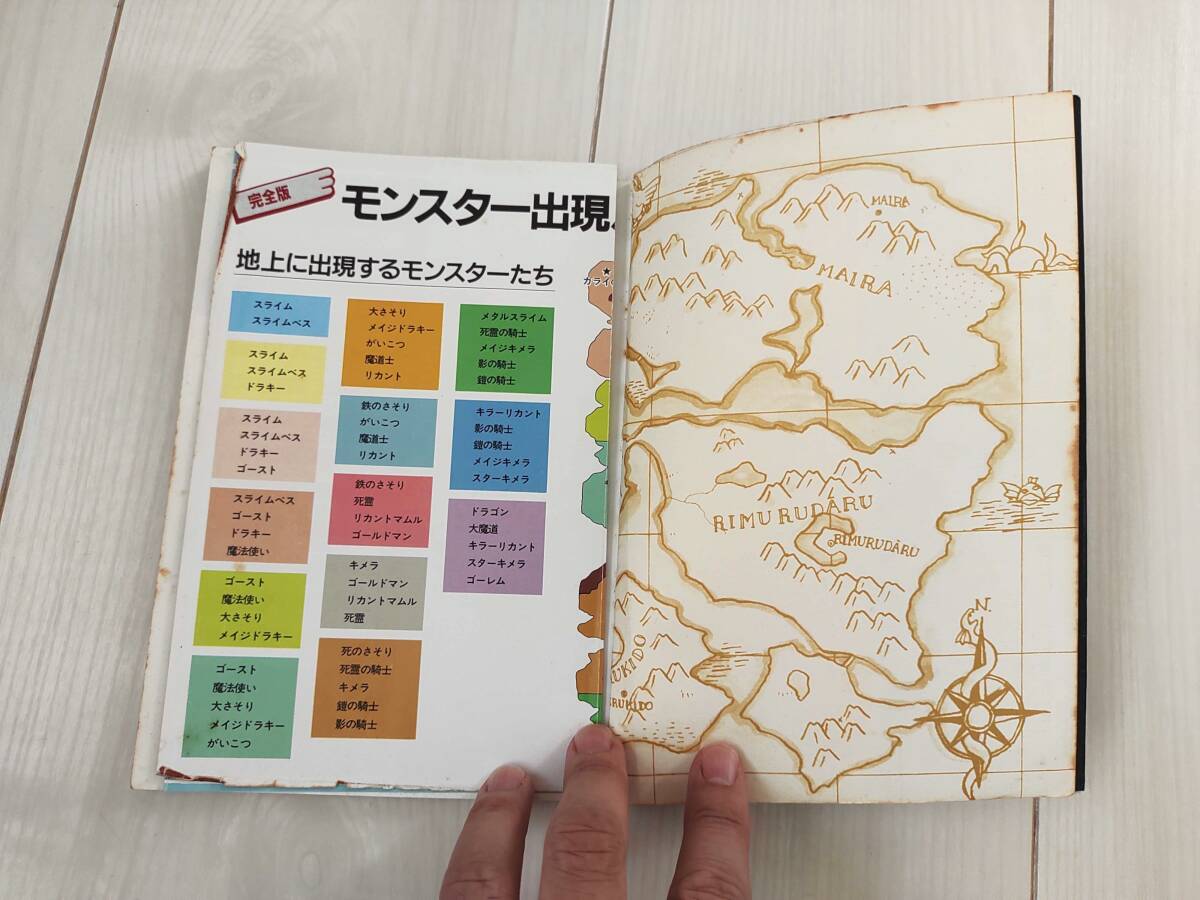 完全版
モンスター出現
地上に出現するモンスターたち
スライム
スライムベス
スライム
スライムベス
ドラキー
スライム
スライムベス
ドラキー
ゴースト
スライムベス
ゴースト
ドラキー
魔法使い
ゴースト
魔法使い
大さそり
メイジドラキー
ゴースト
魔法使い
大さそり
メイジドラキー
がいこつ
大さそり
メイジドラキー
がいこつ
魔道士
リカント
鉄のさそり
がいこつ
魔道士
リカント
鉄のさそり
死霊
リカントマムル
ゴールドマン
キメラ
ゴールドマン
リカントマムル
死霊
死のさそり
死霊の騎士
キメラ
鎧の騎士
影の騎士
メタルスライム
死霊の騎士
メイジキメラ
影の騎士
鎧の騎士
キラーリカント
影の騎士
鎧の騎士
メイジキメラ
スターキメラ
ドラゴン
大魔道
キラーリカント
スターキメラ
ゴーレム
★
ガライ
MAIRA
MAIRA
RIMURUDÁRU
RIMURUDÁRU
UKIDO
RUKIDO
N